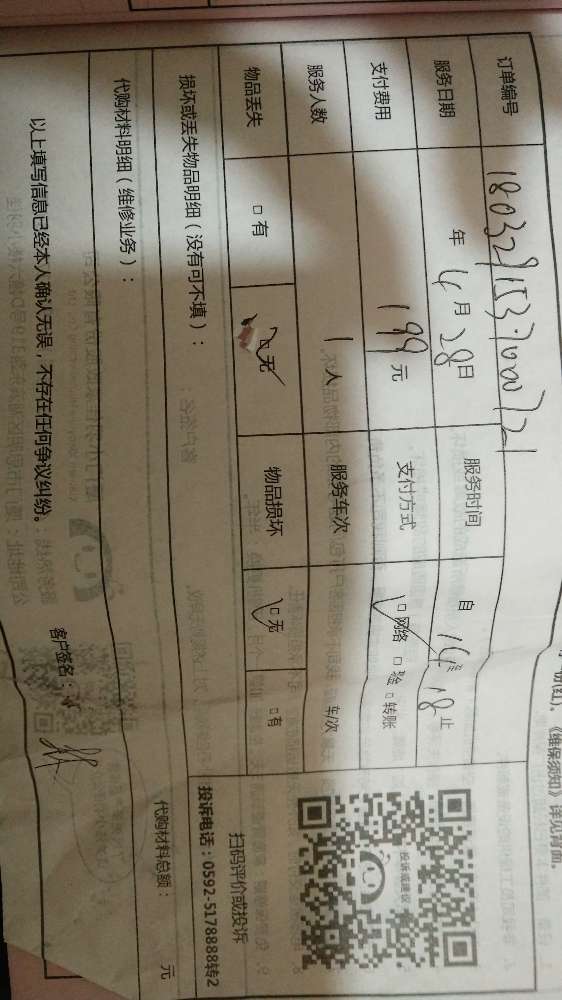 粉红)。《维保须知》详见背面。
订单编号 18032915370072
服务日期 年 4 月 28 日 服务时间 自 14 至 18 止
支付费用 199 元 支付方式 □ 网络 □ 现金 □ 转账
服务人数 1 人 服务车次 车/次
物品丢失 □ 有 □ 无 物品损坏 □ 无 □ 有
投诉或建议
扫码评价或投诉
投诉电话：0592-5178888转2
损坏或丢失物品明细（没有可不填）：
代购材料明细（维修业务）： 代购材料总额： 元
以上填写信息已经本人确认无误，不存在任何争议纠纷。 客户签名：